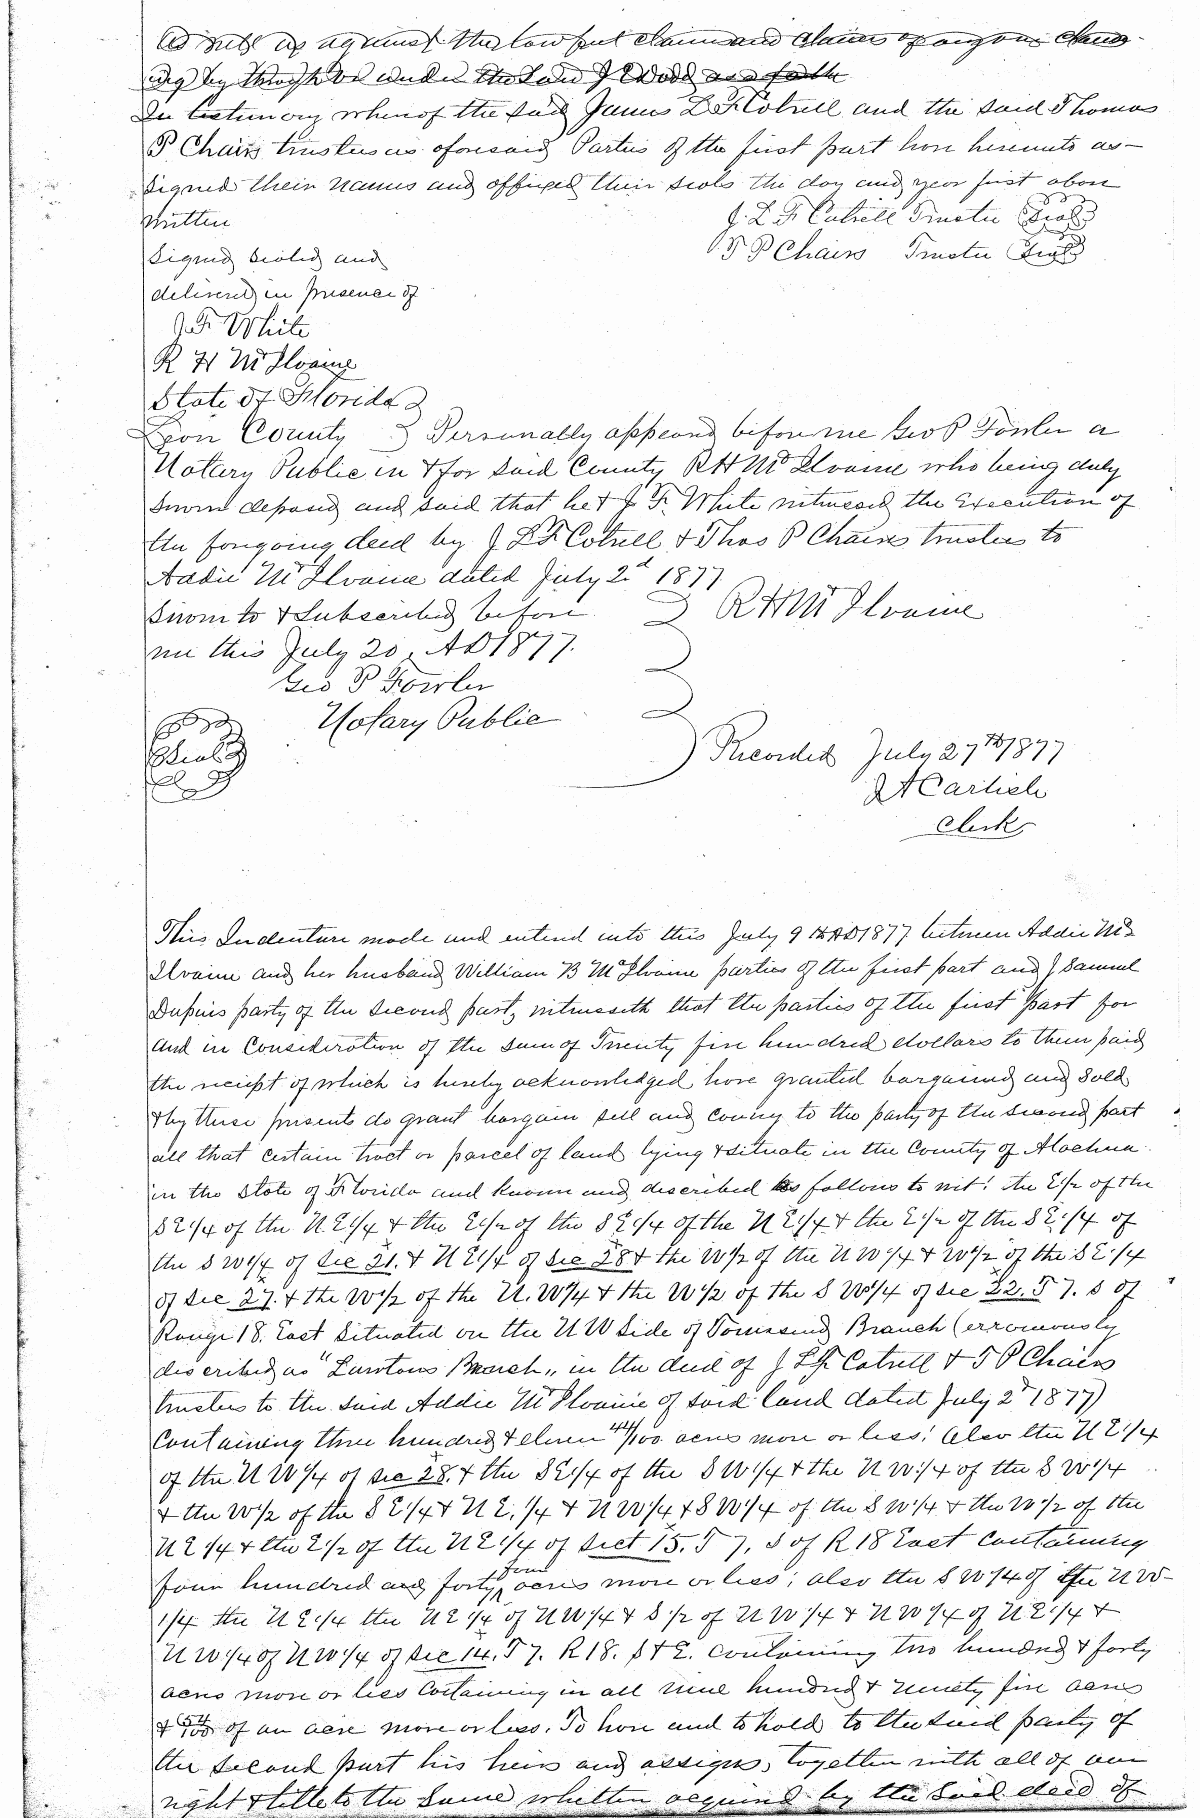 as well as against the lawful claim and claims of any one claim
ing by through or under the said J Wood as a fath
In testimony whereof the said James L F Cotrell and the said Thomas
P Chairs trustees as aforesaid Parties of the first part have hereunto as-
signed their names and affixed their seals the day and year first above
written
J. L. F. Cotrell Trustee Seal
T P Chairs Trustee Seal
Signed Sealed and
delivered in presence of
J. F. White
R H McIlvaine
State of Florida
Leon County } Personally appeared before me Geo P Fowler a
Notary Public in & for said County R H McIlvaine who being duly
sworn deposed and said that he & J. F. White witnessed the Execution of
the foregoing deed by J L F Cotrell & Thos P Chaires trustees to
Addie McIlvaine dated July 2d 1877
Sworn to & Subscribed before } R H McIlvaine
me this July 20, AD 1877.
Geo P Fowler
Notary Public
Seal
Recorded July 27th 1877
J A Carlisle
Clerk
This Indenture made and entered into this July 9th AD 1877 between Addie Mc
Ilvaine and her husband William B McIlvaine parties of the first part and J Samuel
Dupuis party of the second part, witnesseth that the parties of the first part for
and in Consideration of the sum of Twenty five hundred dollars to them paid
the receipt of which is hereby acknowledged have granted bargained and sold
& by these presents do grant bargain sell and convey to the party of the second part
all that certain tract or parcel of land lying & situate in the County of Alachua
in the State of Florida and known and described as follows to wit: the E 1/2 of the
S E 1/4 of the N E 1/4 & the E 1/2 of the S E 1/4 of the N E 1/4 & the E 1/2 of the S E 1/4 of
the S W 1/4 of Sec 21. & N E 1/4 of Sec 28 & the W 1/2 of the N W 1/4 & W 1/2 of the S E 1/4
of Sec 27. & the W 1/2 of the N. W 1/4 & the W 1/2 of the S W 1/4 of Sec 22. T 7. S of
Range 18. East Situated on the N W Side of Townsend Branch (erroneously
described as "Lawtons Branch" in the deed of J L F Cotrell & T P Chairs
trustees to the said Addie McIlvaine of said land dated July 2d 1877)
Containing three hundred & eleven 44/100 acres more or less: Also the N E 1/4
of the N W 1/4 of Sec 28. & the S E 1/4 of the S W 1/4 & the N W 1/4 of the S W 1/4
& the W 1/2 of the S E 1/4 & N E. 1/4 & N W 1/4 & S W 1/4 of the S W 1/4 & the W 1/2 of the
N E 1/4 & the E 1/2 of the N E 1/4 of Sect 15. T 7. S of R 18 East Containing
four hundred and forty four acres more or less; also the S W 1/4 of the N W
1/4 the N E 1/4 the N E 1/4 of N W 1/4 & S 1/2 of N W 1/4 & N W 1/4 of N E 1/4 &
N W 1/4 of N W 1/4 of Sec 14. T 7. R 18. S & E. containing two hundred & forty
acres more or less Containing in all nine hundred & ninety five acres
& 54/100 of an acre more or less. To have and to hold to the said party of
the second part his heirs and assigns, together with all of our
right & title to the same whether acquired by the said deed of